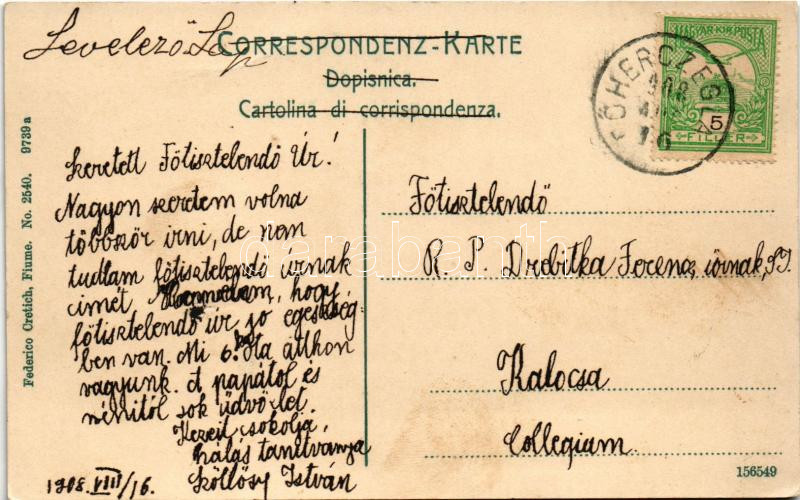 Levelező Lap
CORRESPONDENZ-KARTE
Dopisnica.
Cartolina di corrispondenza.
MAGYAR KIR. POSTA
5
FILLÉR
FŐHERCZEGLA
908
16
Federico Cretich, Fiume. No. 2540. 9739a
Szeretett Főtisztelendő Úr!
Nagyon szeretem volna
többször irni, de nem
tudtam főtisztelendő úrnak
cimét, hogy
főtisztelendő úr jó egészség-
ben van. Mi 6. óta itthon
vagyunk. A papától és
nénitől sok üdvözlet.
Kezeit csókolja
hálás tanitványa
Szőllősy István
1908. VIII/16.
Főtisztelendő
R. P. Drebitka Ferencz úrnak, S.J.
Kalocsa
Collegium.
156549
darabanth